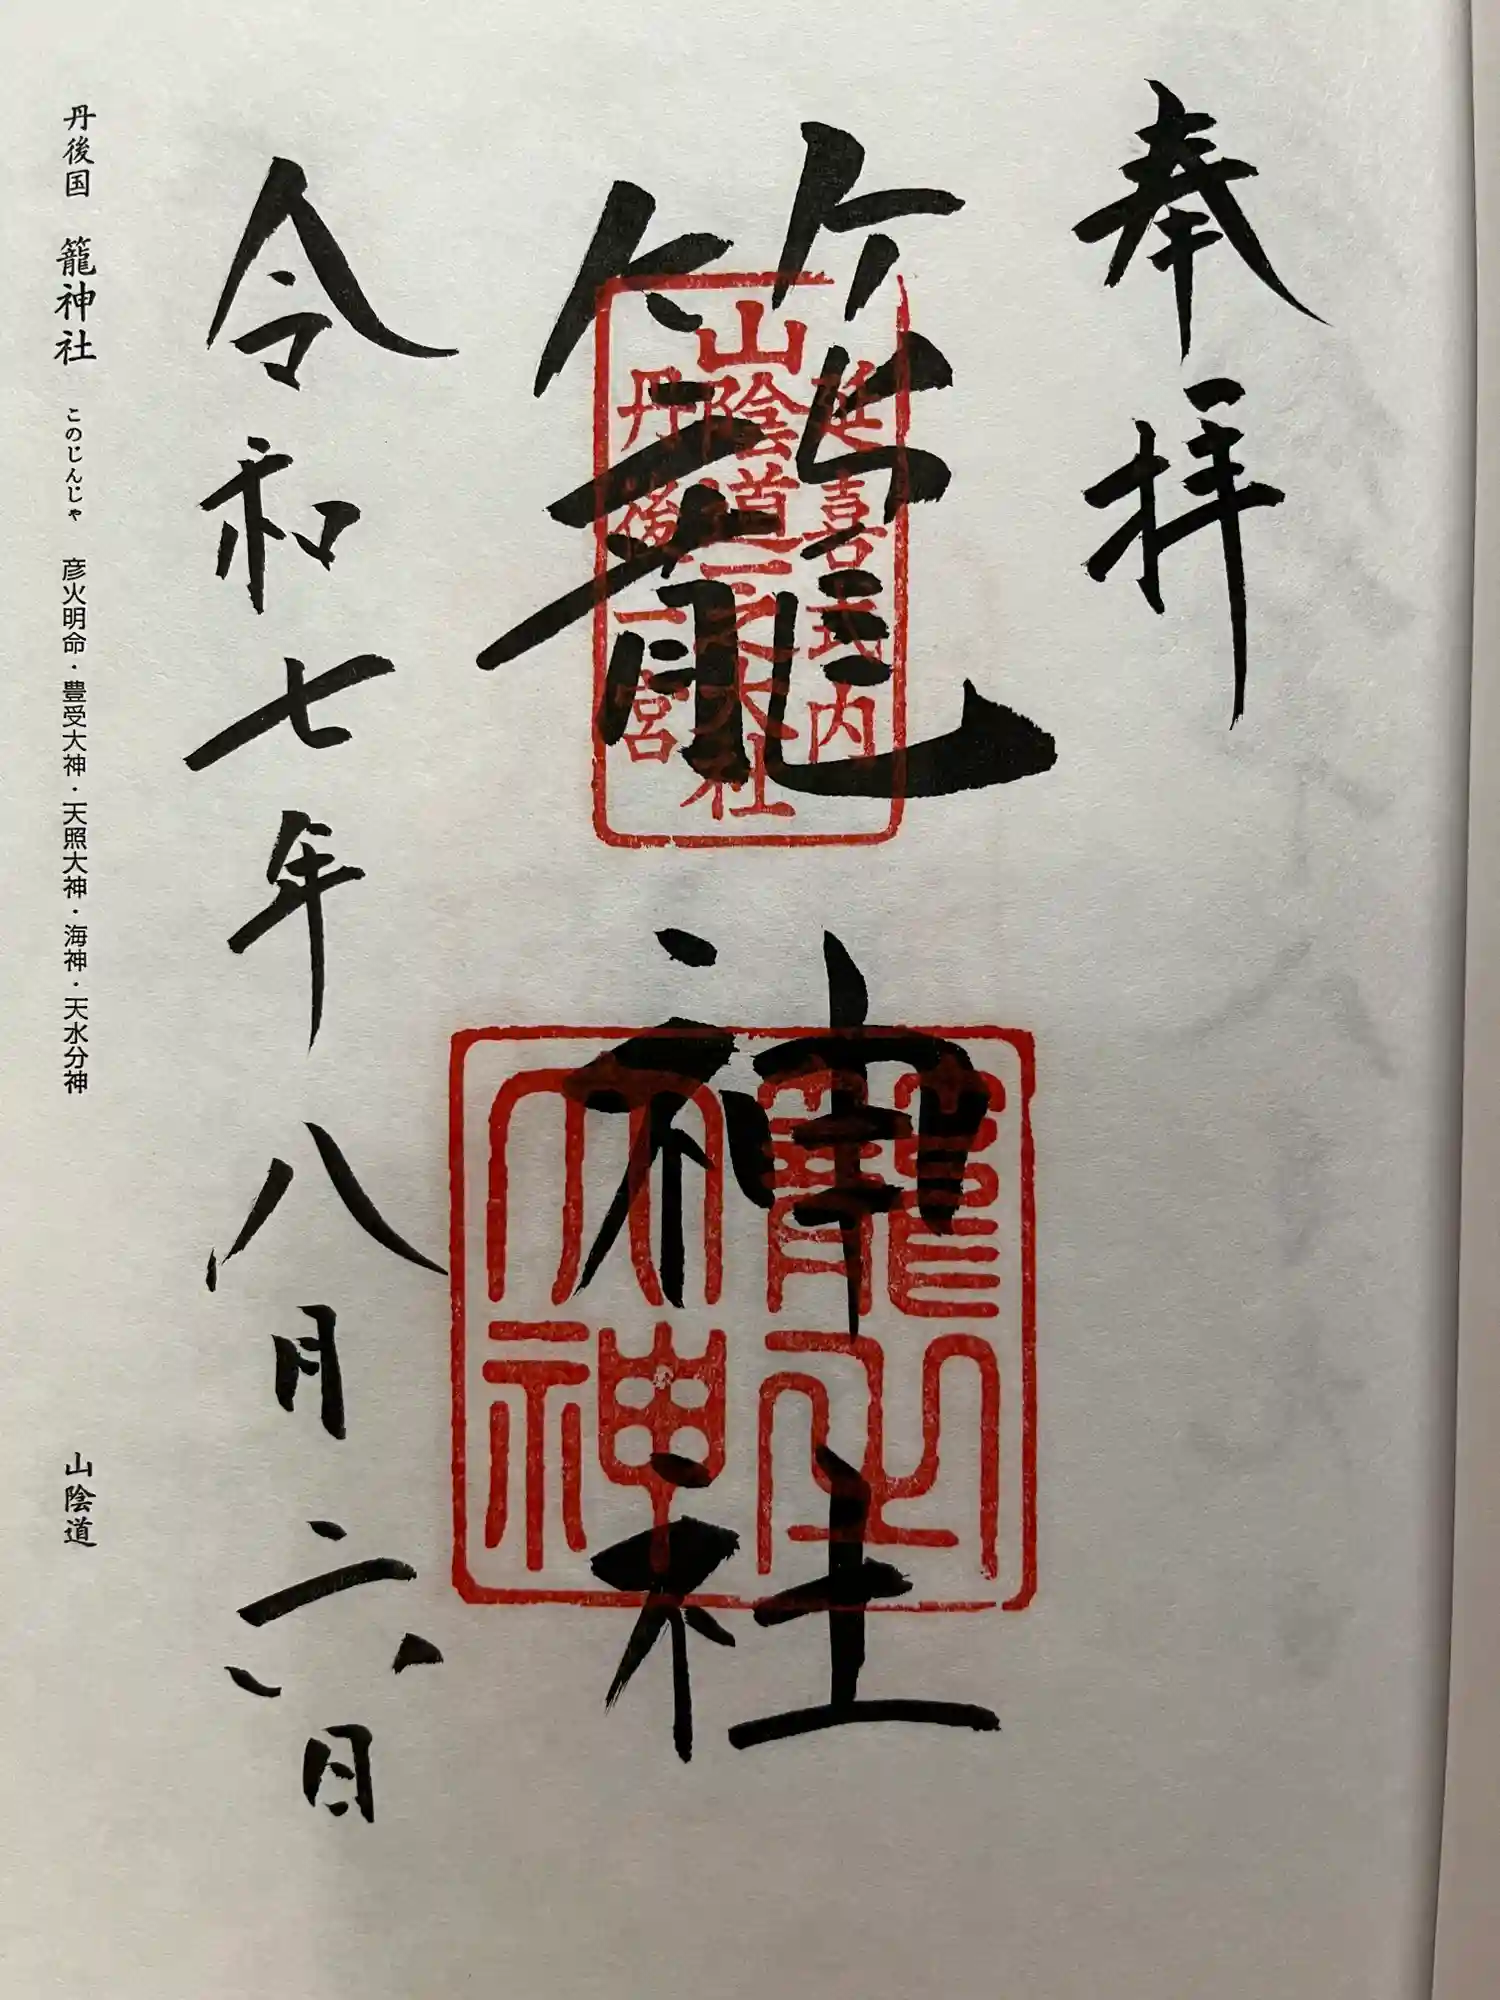 奉拝
籠神社
延喜式内
山陰道一之大社
丹後一宮
籠之大神
令和七年八月六日
丹後国 籠神社 このじんじゃ 彦火明命・豊受大神・天照大神・海神・天水分神 山陰道